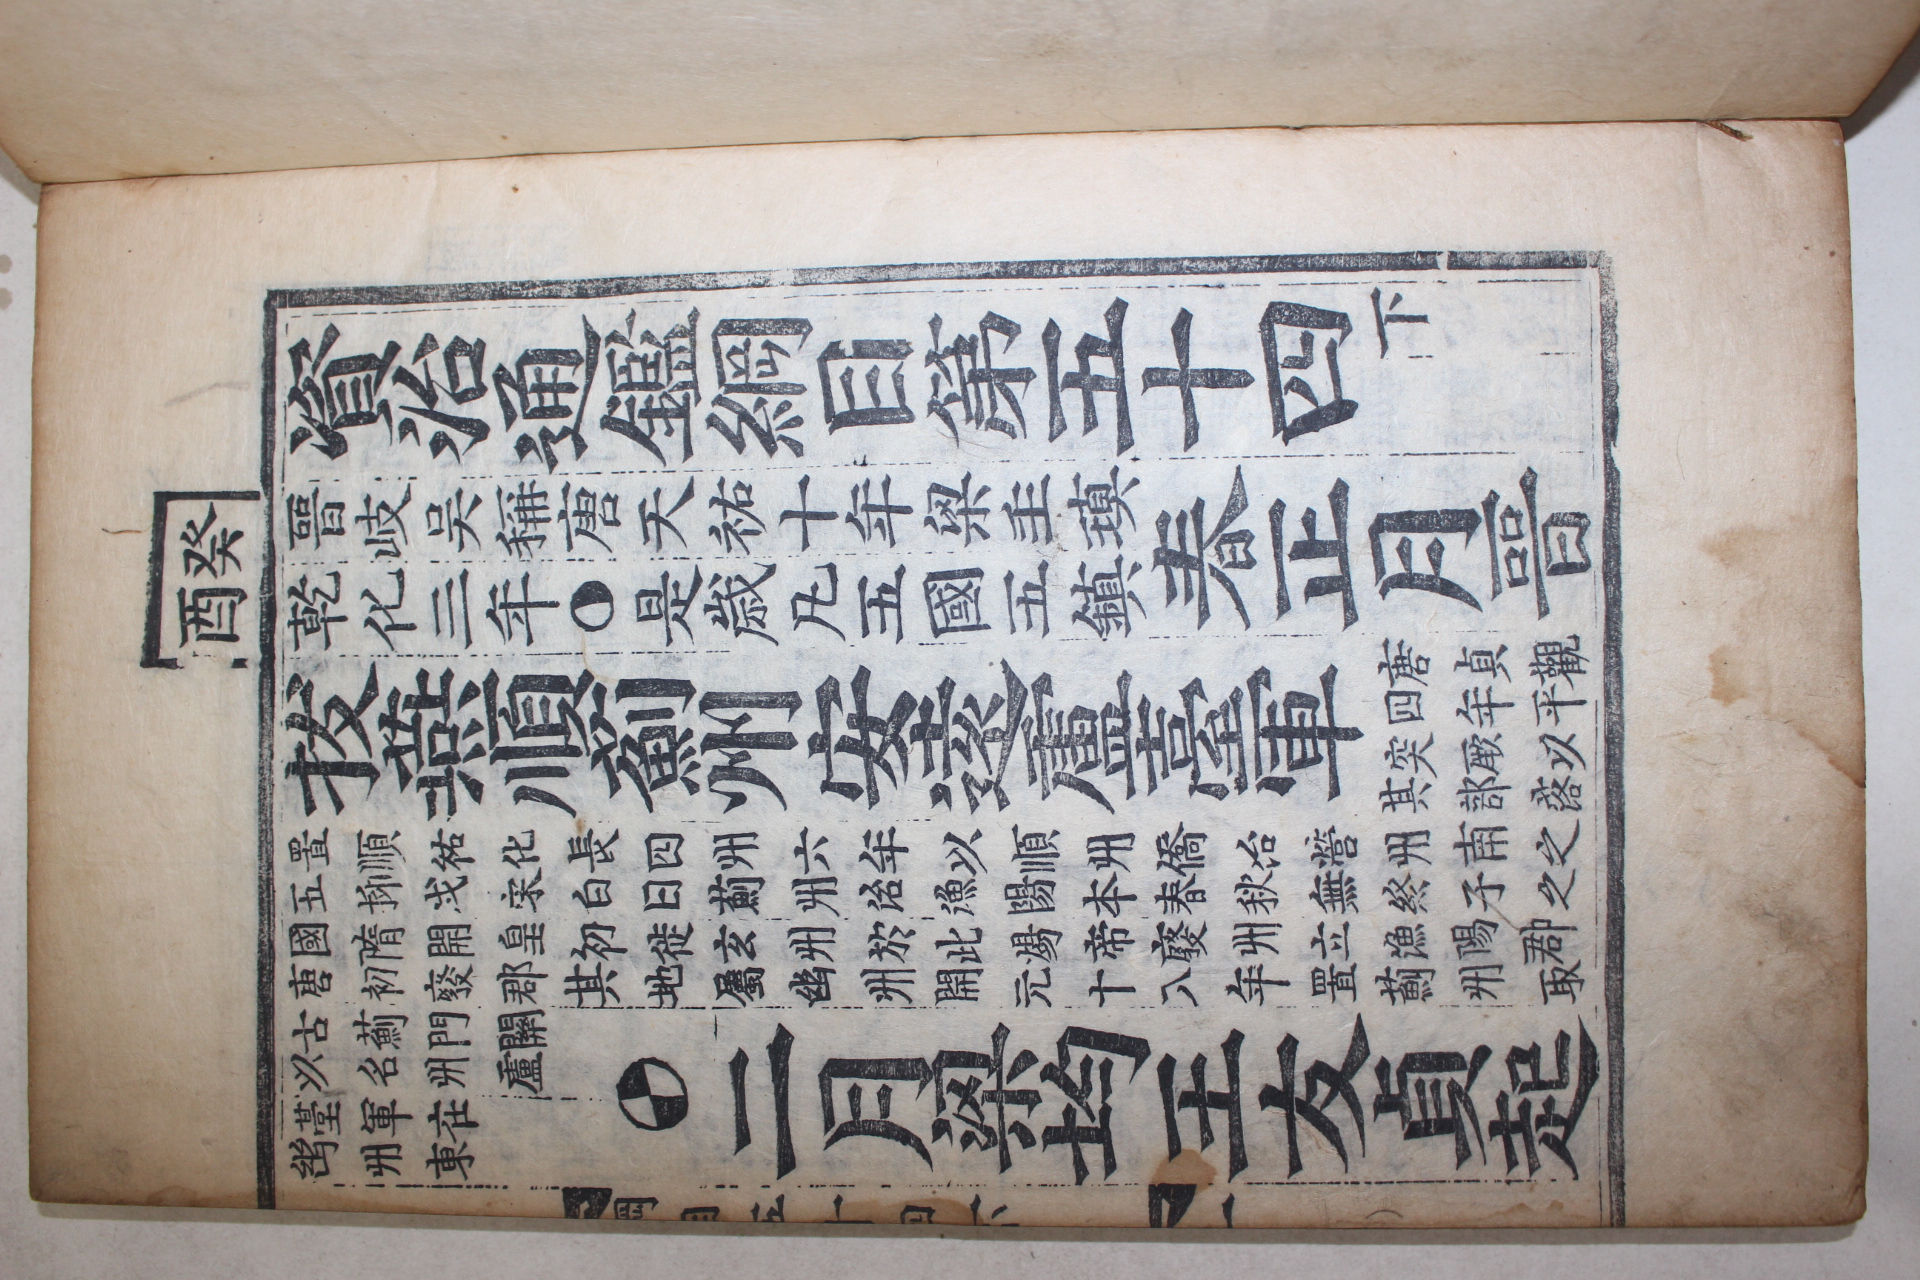 癸酉
資治通鑑綱目第五十四下
晉岐吴稱唐天祐十年梁主瑱
乾化三年○是歲凡五國五鎮
春正月晉
拔燕順薊州安遠盧臺軍
唐貞觀
四年平
突厥以
其部落
置順祐化長四州六年以順州僑治營州南之
五栁戍宋白曰薊州治漁陽本春秋無終子之
國隋開皇初徙玄州於此煬帝廢州立漁陽郡
唐初廢郡其地屬幽州開元十八年置薊州取
古薊門關
以名州盧
臺軍在
幽州東
二月梁均王友貞起
綱目五十四下
一